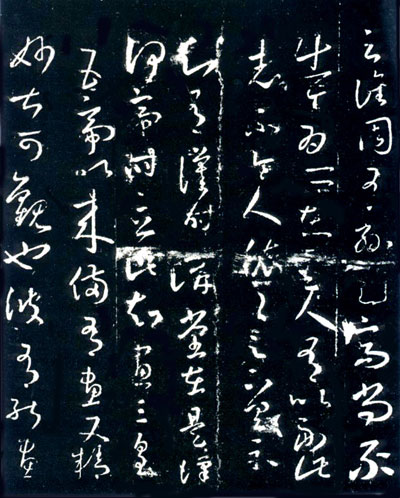 云譙周有孫高尚不
出今為所在其人有以副此
志不令人依依足下具示
知有漢時講堂在是漢
何帝時立此知畫三皇
五帝以來備有畫又精
妙甚可觀也彼有能畫